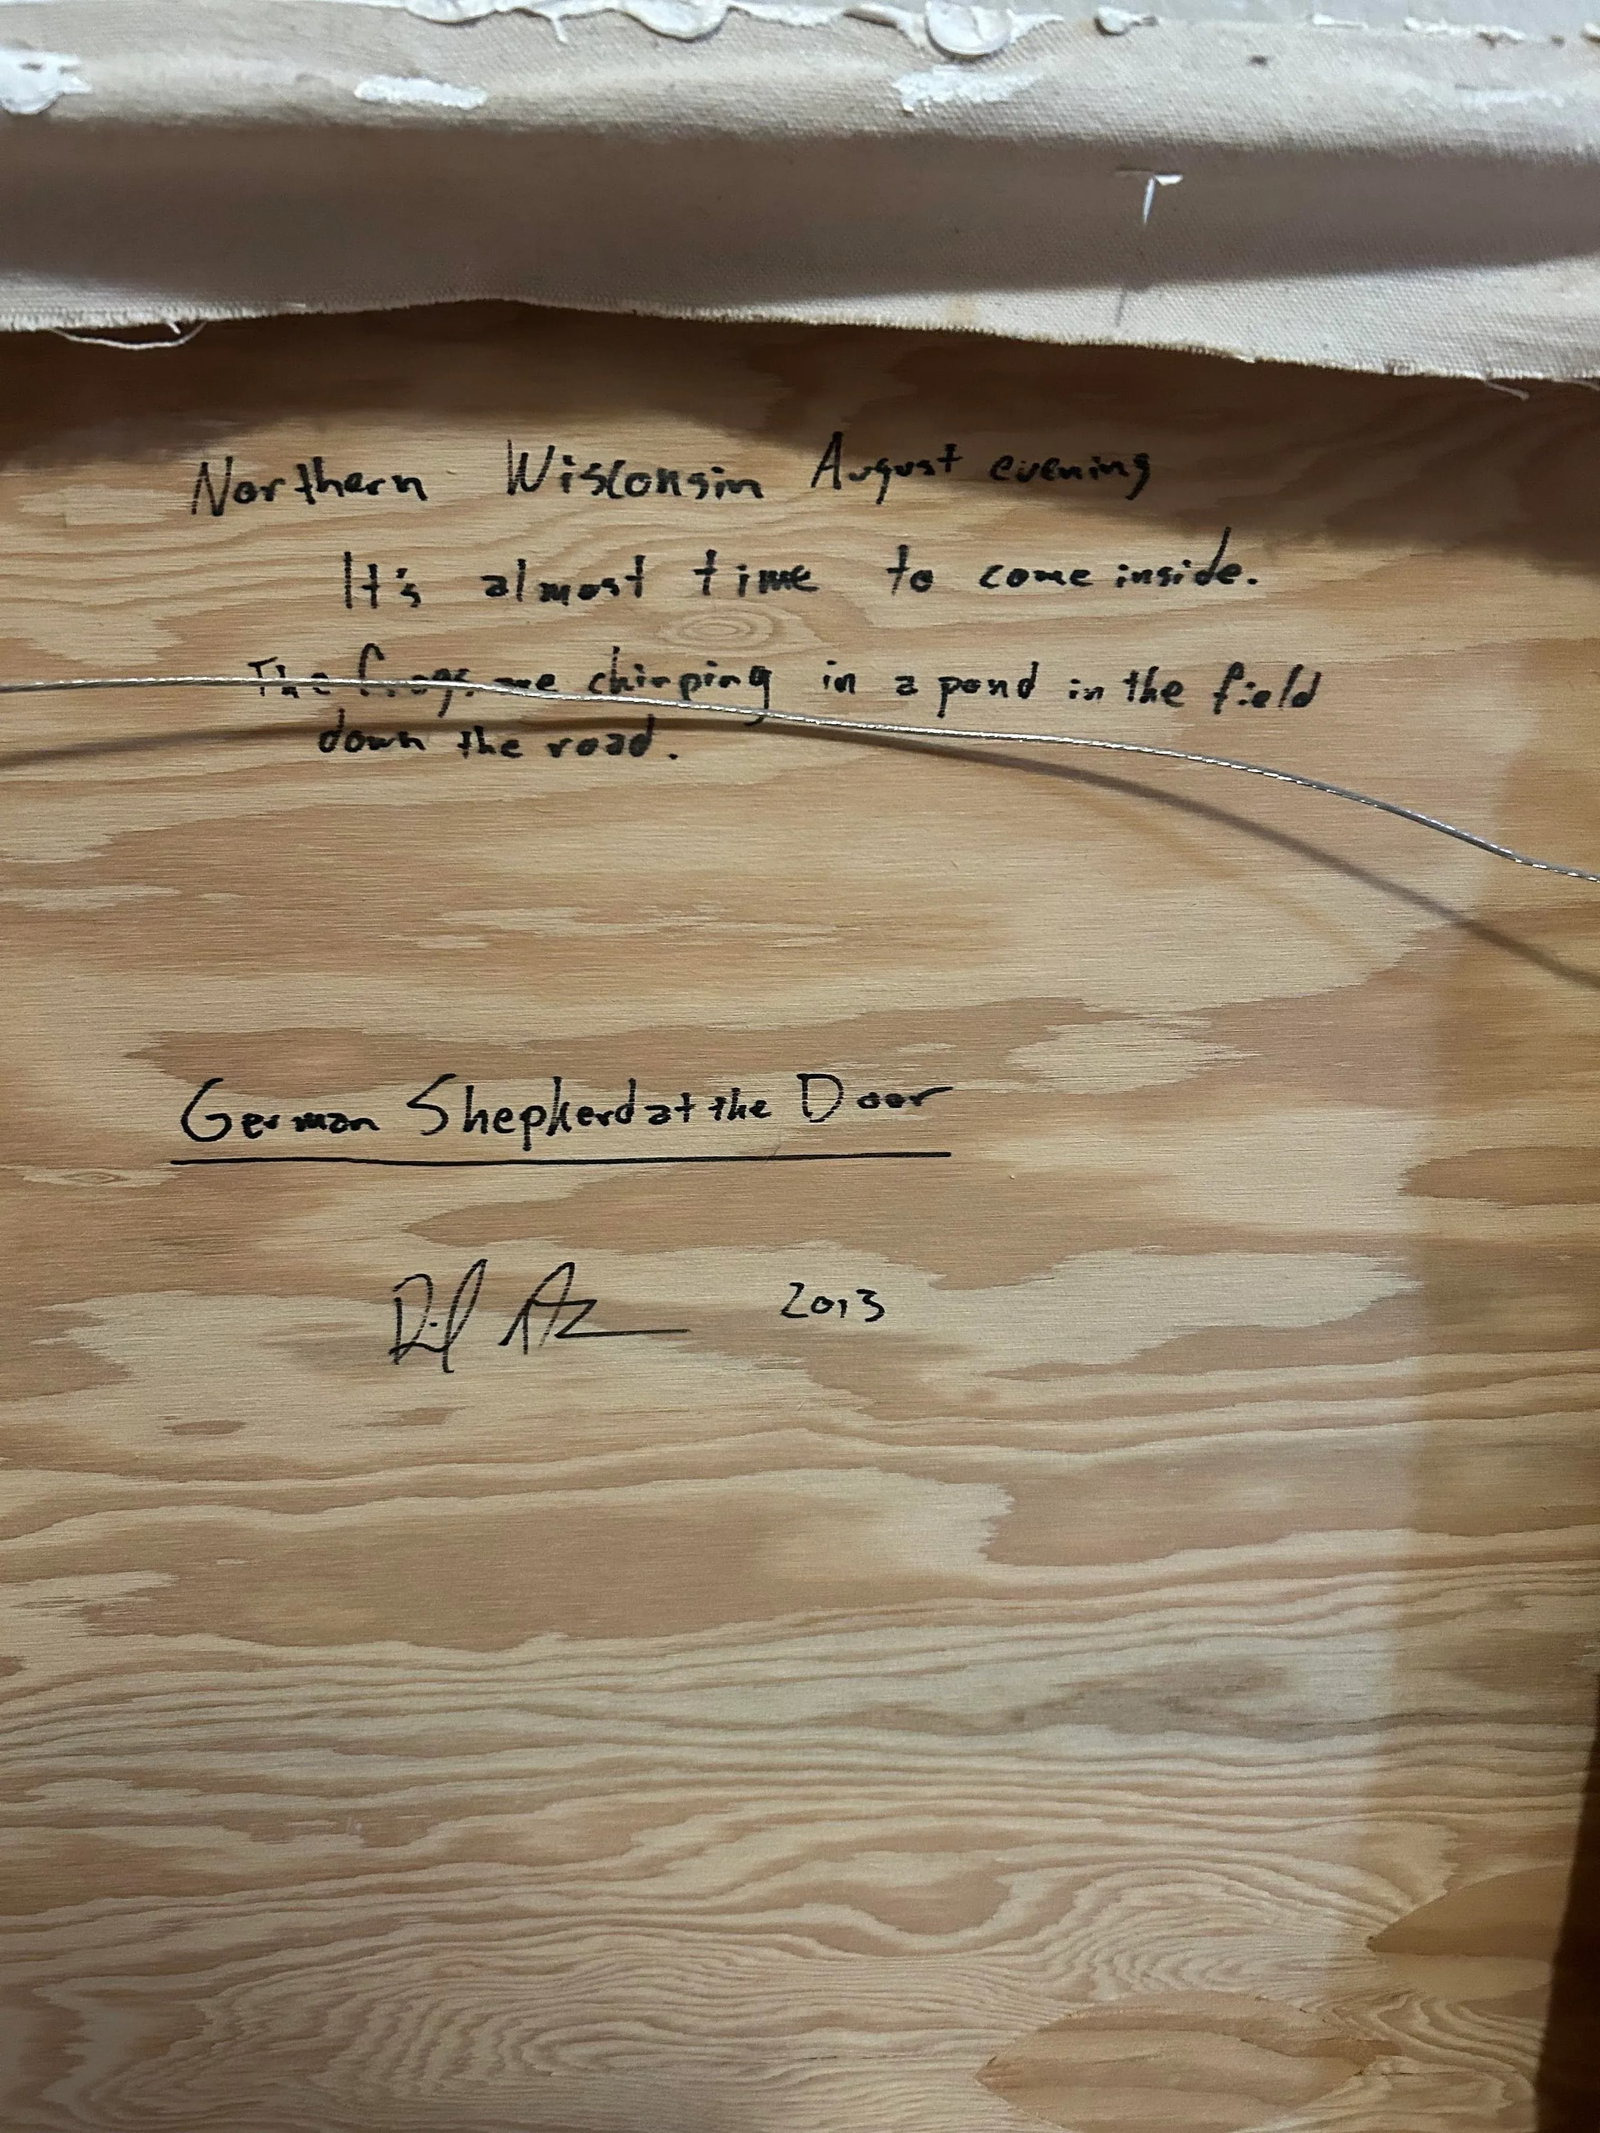 Northern Wisconsin August evening
It's almost time to come inside.
The frogs are chirping in a pond in the field
down the road.
German Shepherd at the Door
2013